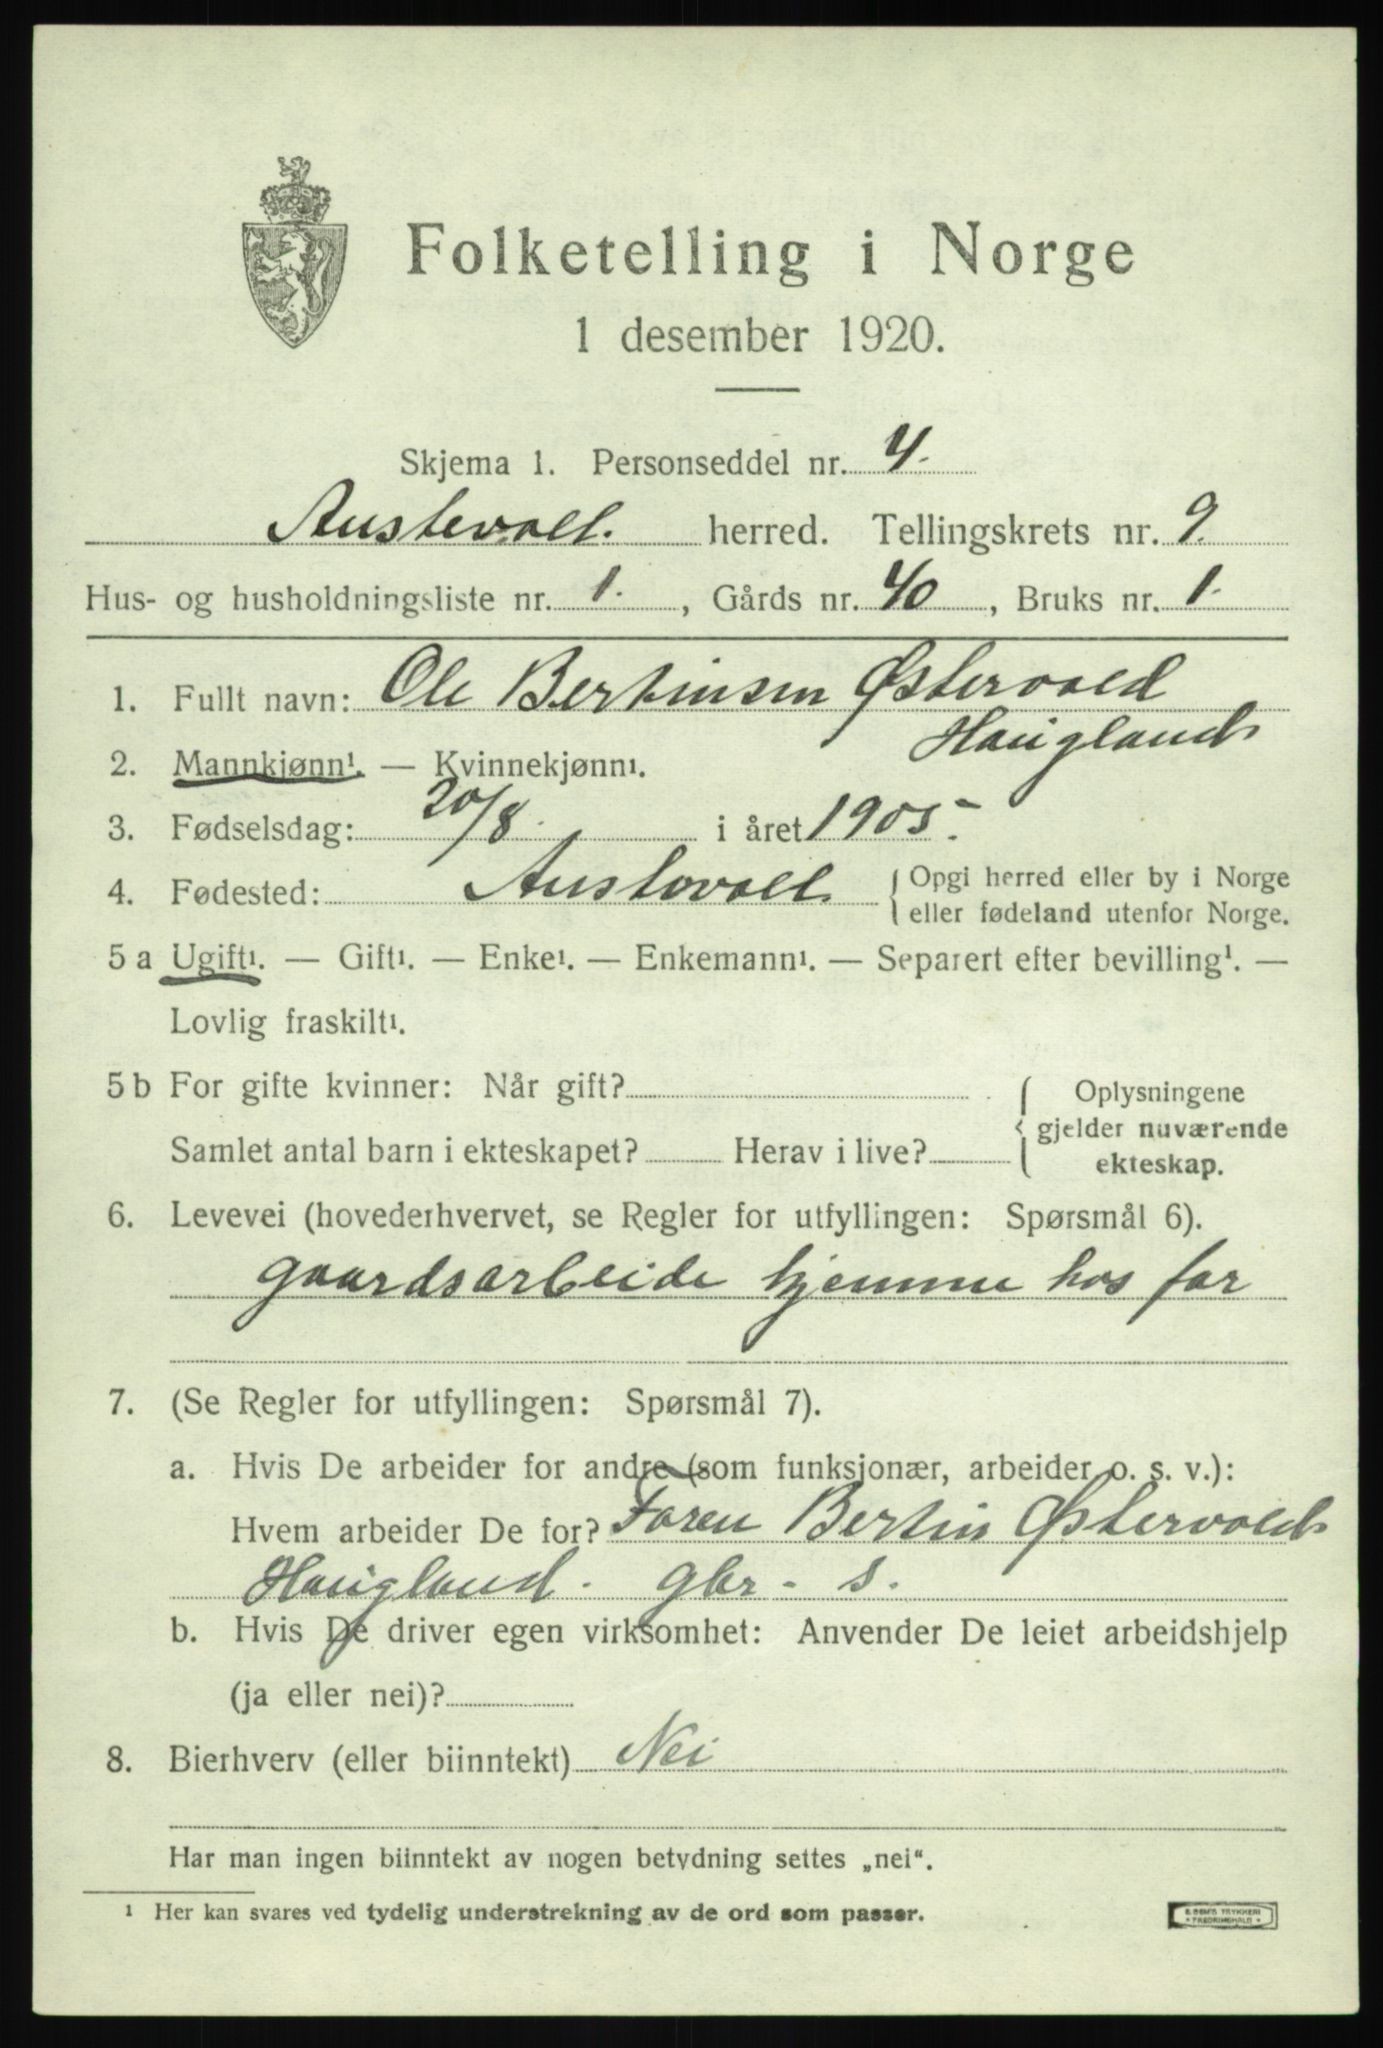 Folketelling i Norge
1 desember 1920.
Skjema 1. Personseddel nr. 4.
Austevoll. herred. Tellingskrets nr. 9.
Hus- og husholdningsliste nr. 1. , Gårds nr. 40 , Bruks nr. 1.
1. Fullt navn: Ole Bertinsen Østervold
Haugland
2. Mannkjønn¹. — Kvinnekjønn¹.
3. Fødselsdag: 20/8. i året 1905.
4. Fødested: Austevoll. { Opgi herred eller by i Norge
eller fødeland utenfor Norge.
5 a Ugift¹. — Gift¹. — Enke¹. — Enkemann¹. — Separert efter bevilling¹. —
Lovlig fraskilt¹.
5 b For gifte kvinner: Når gift? { Oplysningene
gjelder nuværende
Samlet antal barn i ekteskapet? Herav i live? ekteskap.
6. Levevei (hovederhvervet, se Regler for utfyllingen: Spørsmål 6).
gaardsarbeide hjemme hos far
7. (Se Regler for utfyllingen: Spørsmål 7).
a. Hvis De arbeider for andre (som funksjonær, arbeider o. s. v.):
Hvem arbeider De for? Faren Bertin Østervold
Haugland. gbr. s.
b. Hvis De driver egen virksomhet: Anvender De leiet arbeidshjelp
(ja eller nei)?
8. Bierhverv (eller biinntekt) Nei
Har man ingen biinntekt av nogen betydning settes „nei“.
¹ Her kan svares ved tydelig understrekning av de ord som passer.
TRYKKERI
FREDRIKSHALD